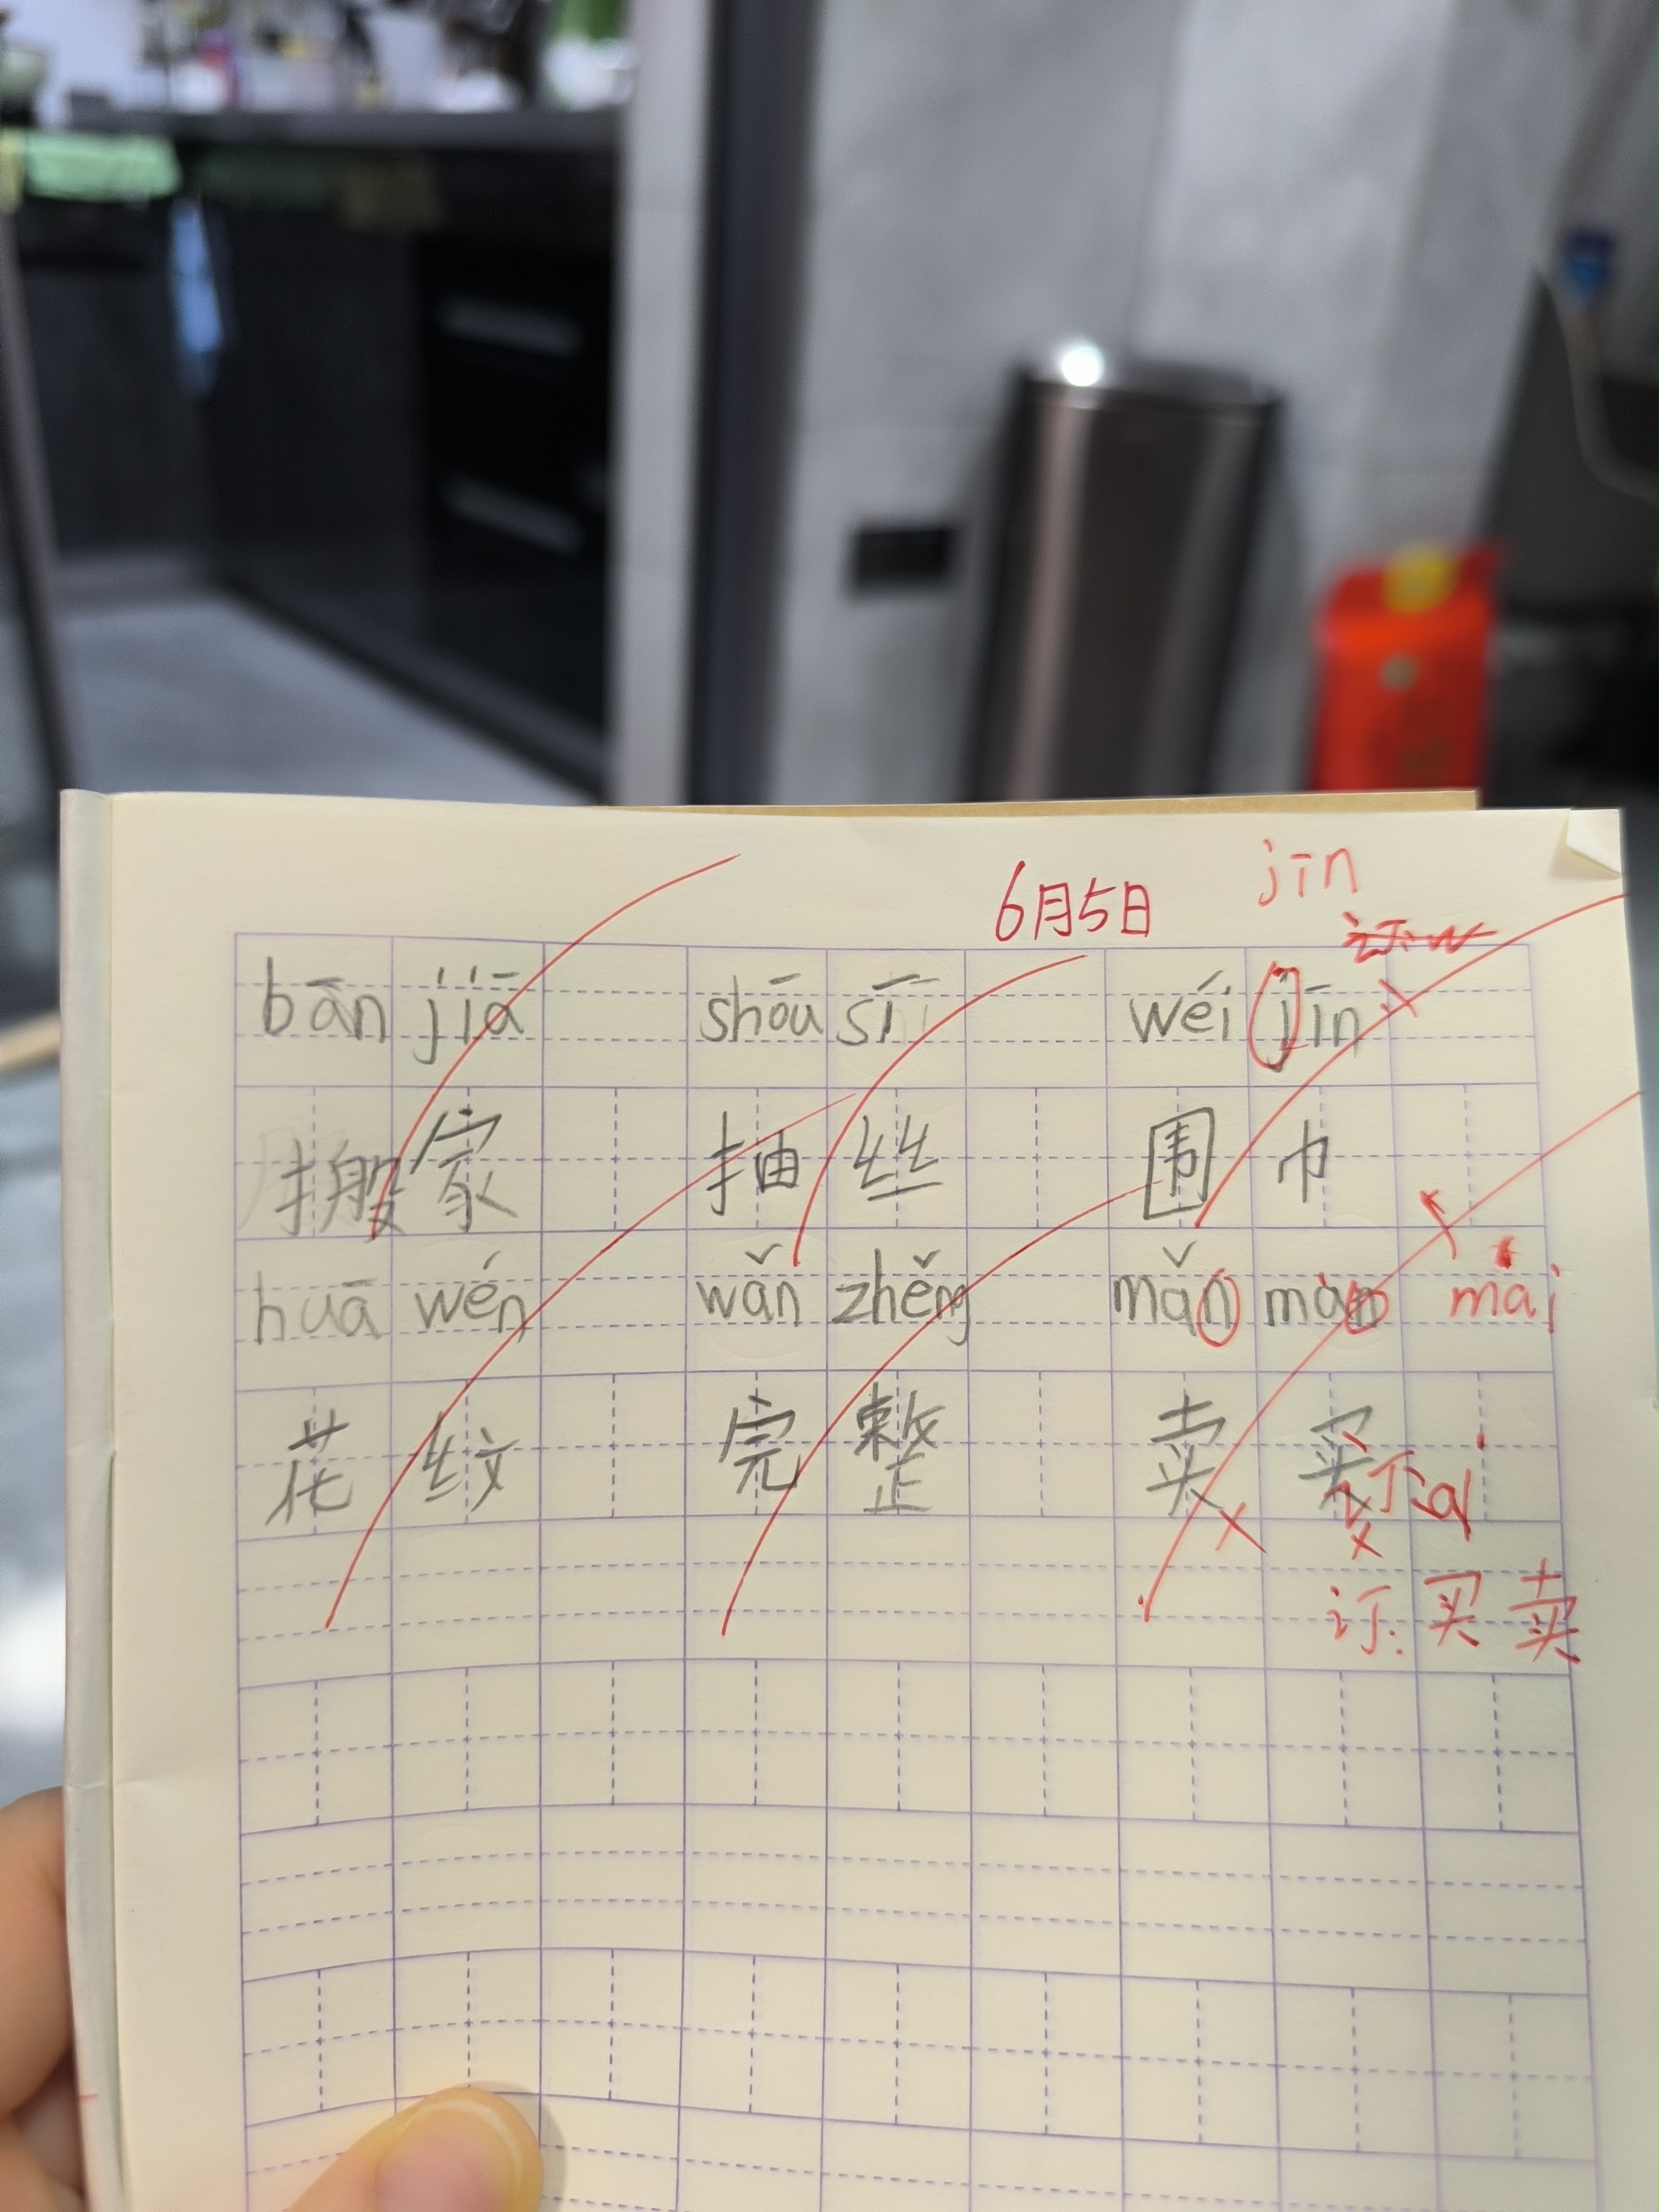 jīn
6月5日
bān jiā shōu sī wéi jīn
搬家 抽丝 围巾
huā wén wǎn zhěng mǎn màn mai
花纹 完整 卖买
订 ai
订:买卖